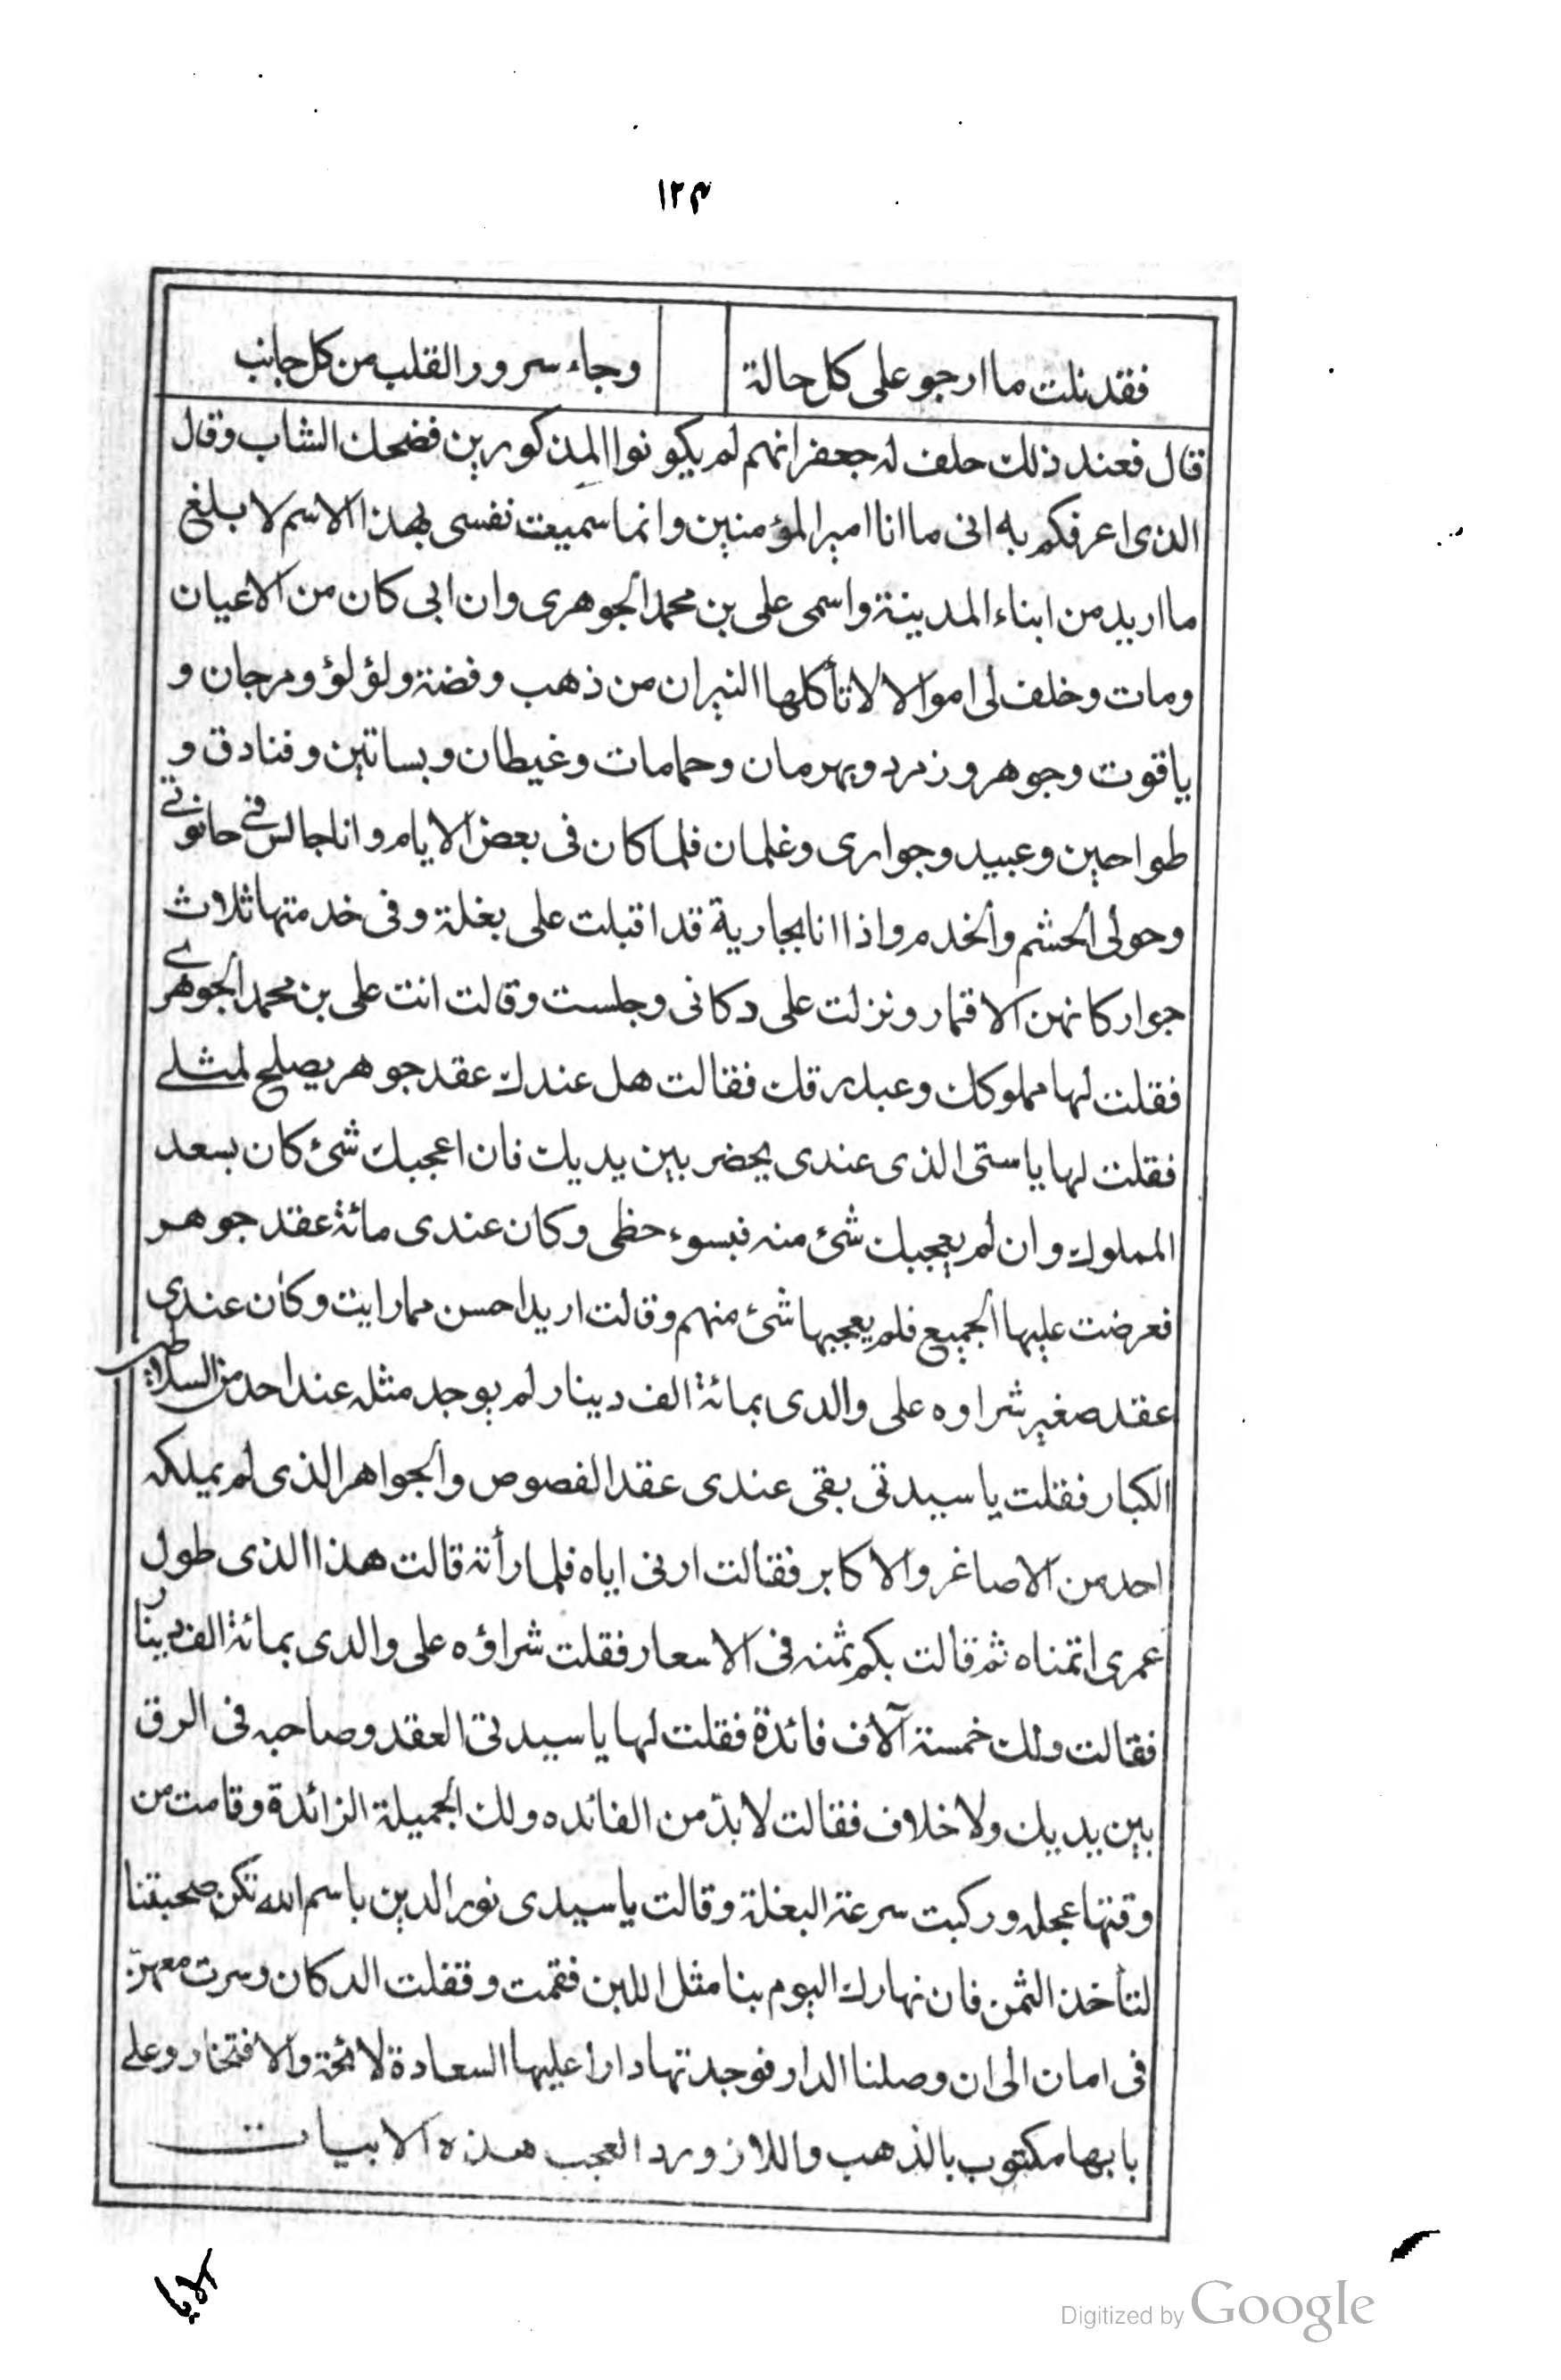 ١٢٣
فقد نلت ما ارجو على كل حالة وجاء سرور القلب من كل جانب
قال فعند ذلك حلف له جعفر انهم لم يكونوا المذكورين فضحك الشاب وقال
الذى اعرفكم به انى ما انا امير المؤمنين وانما سميت نفسى بهذا الاسم لا بلغ
ما اريد من ابناء المدينة واسمى على بن محمد الجوهرى وان ابى كان من الاعيان
ومات وخلف لى اموالا لا تأكلها النيران من ذهب وفضة ولؤلؤ ومرجان و
ياقوت وجوهر وزمرد وبهرمان وحمامات وغيطان وبساتين وفنادق و
طواحين وعبيد وجوارى وغلمان فلما كان فى بعض الايام وانا جالس فى حانوتى
وحولى الحشم والخدم واذا انا بجارية قد اقبلت على بغلة وفى خدمتها ثلاث
جوار كانهن الاقمار ونزلت على دكانى وجلست وقالت انت على بن محمد الجوهرى
فقلت لها مملوكك وعبد رقك فقالت هل عندك عقد جوهر يصلح لمثلى
فقلت لها يا ستى الذى عندى يحضر بين يديك فان اعجبك شئ كان بسعد
المملوك وان لم يعجبك شئ منه فبسوء حظى وكان عندى مائة عقد جوهر
فعرضت عليها الجميع فلم يعجبها شئ منهم وقالت اريد احسن مما رايت وكان عندى
عقد صغير شراوه على والدى بمائة الف دينار لم يوجد مثله عند احد من السلاطين
الكبار فقلت يا سيدتى بقى عندى عقد الفصوص والجواهر الذى لم يملكه
احد من الاصاغر والاكابر فقالت ارنى اياه فلما رأته قالت هذا الذى طول
عمرى اتمناه ثم قالت بكم ثمنه فى الاسعار فقلت شراؤه على والدى بمائة الف دينار
فقالت ولك خمسة آلاف فائدة فقلت لها يا سيدتى العقد وصاحبه فى الرق
بين يديك ولا خلاف فقالت لا بدّ من الفائده ولك الجميلة الزائدة وقامت من
وقتها عجله وركبت سرعة البغلة وقالت يا سيدى نور الدين باسم الله تكن صحبتنا
لتأخذ الثمن فان نهارك اليوم بنا مثل اللبن فقمت وقفلت الدكان وسرت معهنّ
فى امان الى ان وصلنا الدار فوجدتها دارا عليها السعادة لائحة والافتخار وعلى
بابها مكتوب بالذهب واللازورد العجب هذه الابيات
Digitized by Google